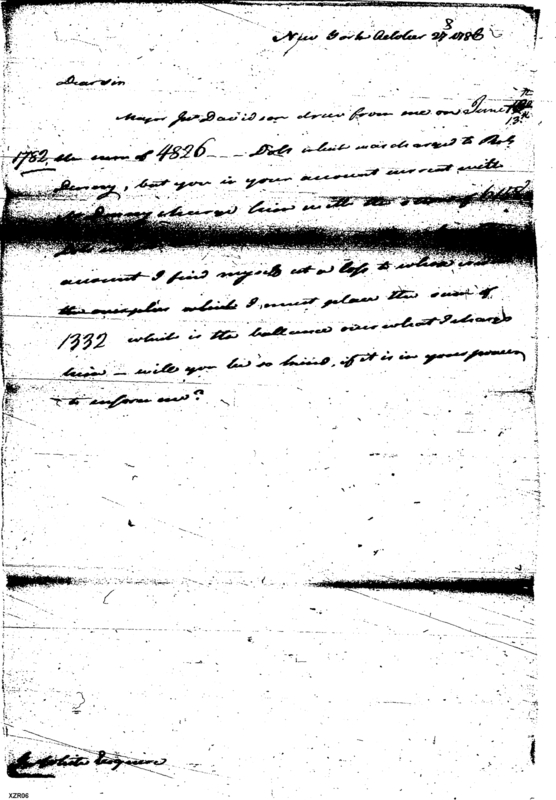 New York October 1786
Dear sir
Major Jno Davidson drew from me on June 13.th
1782, the sum of 4826 Dols which was charged to Rob.
Denny, but you in your account current with
Mr Denny charge him with the sum of
Dols which
account I find myself at a loss to whose
the overplus which I must place the sum of
1332 which is the ballance over what I charge
him — will you be so kind, if it is in your power
to inform me?
White Esquire
XZR06